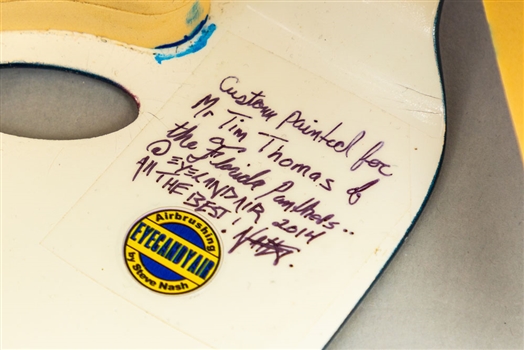 Custom painted for
Mr Tim Thomas of
the Florida Panthers..
@EYECANDYAIR 2014
All THE BEST!
Airbrushing
EYECANDYAIR
by Steve Nash